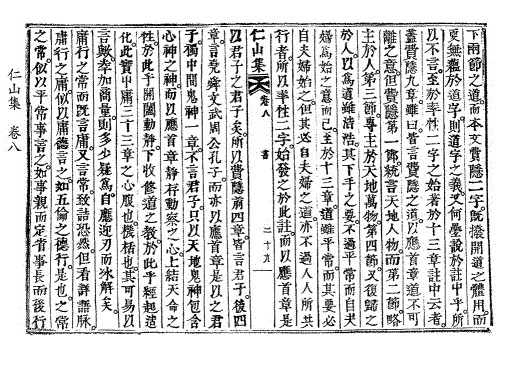 下兩節之道而本文費隱二字旣撥開道之體用而
更無蘊於道字則道字之義又何疊說於註中乎所
以不言至於率性二字之始著於十三章註中云者
蓋費隱九章雖曰皆言費隱之道以應首章道不可
離之意但費隱第一節統言天地人物而第二節略
主於人第三節專主於天地萬物第四節又復歸之
於人以爲道雖浩浩其下手之要不過平常而自夫
婦爲始之意而已至於十三章道雖平常而其要必
自夫婦始之但其必自夫婦之道亦不過人人所共
行者所以率性二字始發之於此註而以應首章是
仁山集 卷八 書 二十九
以君子之君子矣所以費隱前四章皆言君子後四
章言堯舜文武周公孔子而亦以應首章是以之君
子獨中間鬼神一章不言君子只以天地鬼神包含
心神之神而以應首章靜存動察之心上結天命之
性於此乎開闔動靜下收修道之敎於此乎經起造
化此實中庸三十三章之心腹也樞栝也其可易以
言歟幸加商量則多少疑爲自應迎刃而氷解矣
庸行之常而旣言庸又言常致詰恐然但看詳語脉
庸行之庸似以庸德言之如五倫之德行是也之常
之常似以平常事言之如事親而定省事長而後行
仁山集 卷八